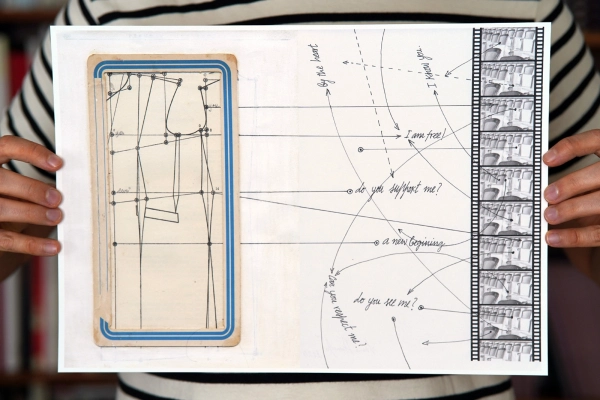 By the heart
I know you
I am free!
do you support me?
a new begining
do you respect me?
do you see me?